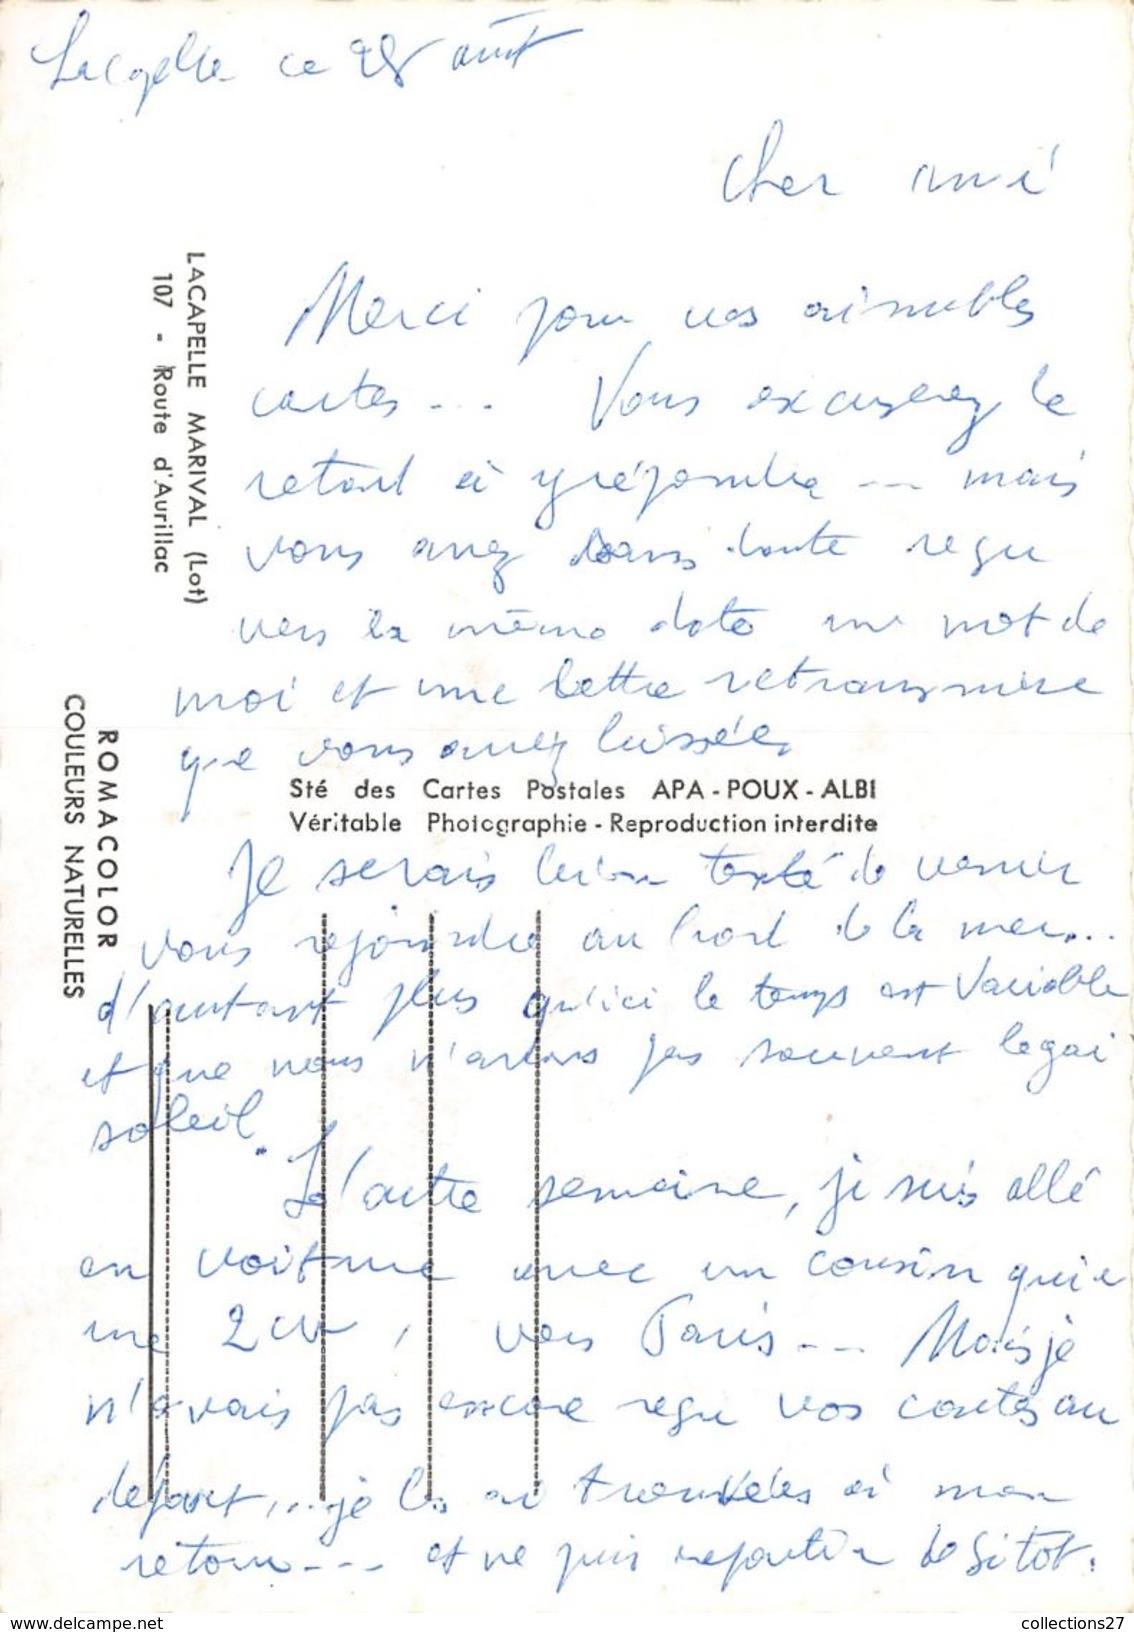 Lacapelle ce 28 août
Cher ami
Merci pour vos aimables
cartes... Vous excuserez le
retard à y répondre... mais
vous avez sans doute reçu
vers la même date un mot de
moi et une lettre retransmise
que vous avez laissée
Je serais bien tenté de venir
vous rejoindre au bord de la mer...
d'autant plus qu'ici le temps est variable
et que nous n'avons pas souvent le gai
soleil.
L'autre semaine, je suis allé
en voiture avec un cousin qui a
une 2 cv, vers Paris... Mais je
n'avais pas encore reçu vos cartes au
départ,... je les ai trouvées à mon
retour... et ne puis repartir de sitot.
LACAPELLE MARIVAL (Lot)
107 - Route d'Aurillac
ROMACOLOR
COULEURS NATURELLES
Sté des Cartes Postales APA-POUX-ALBI
Véritable Photographie - Reproduction interdite
collections27